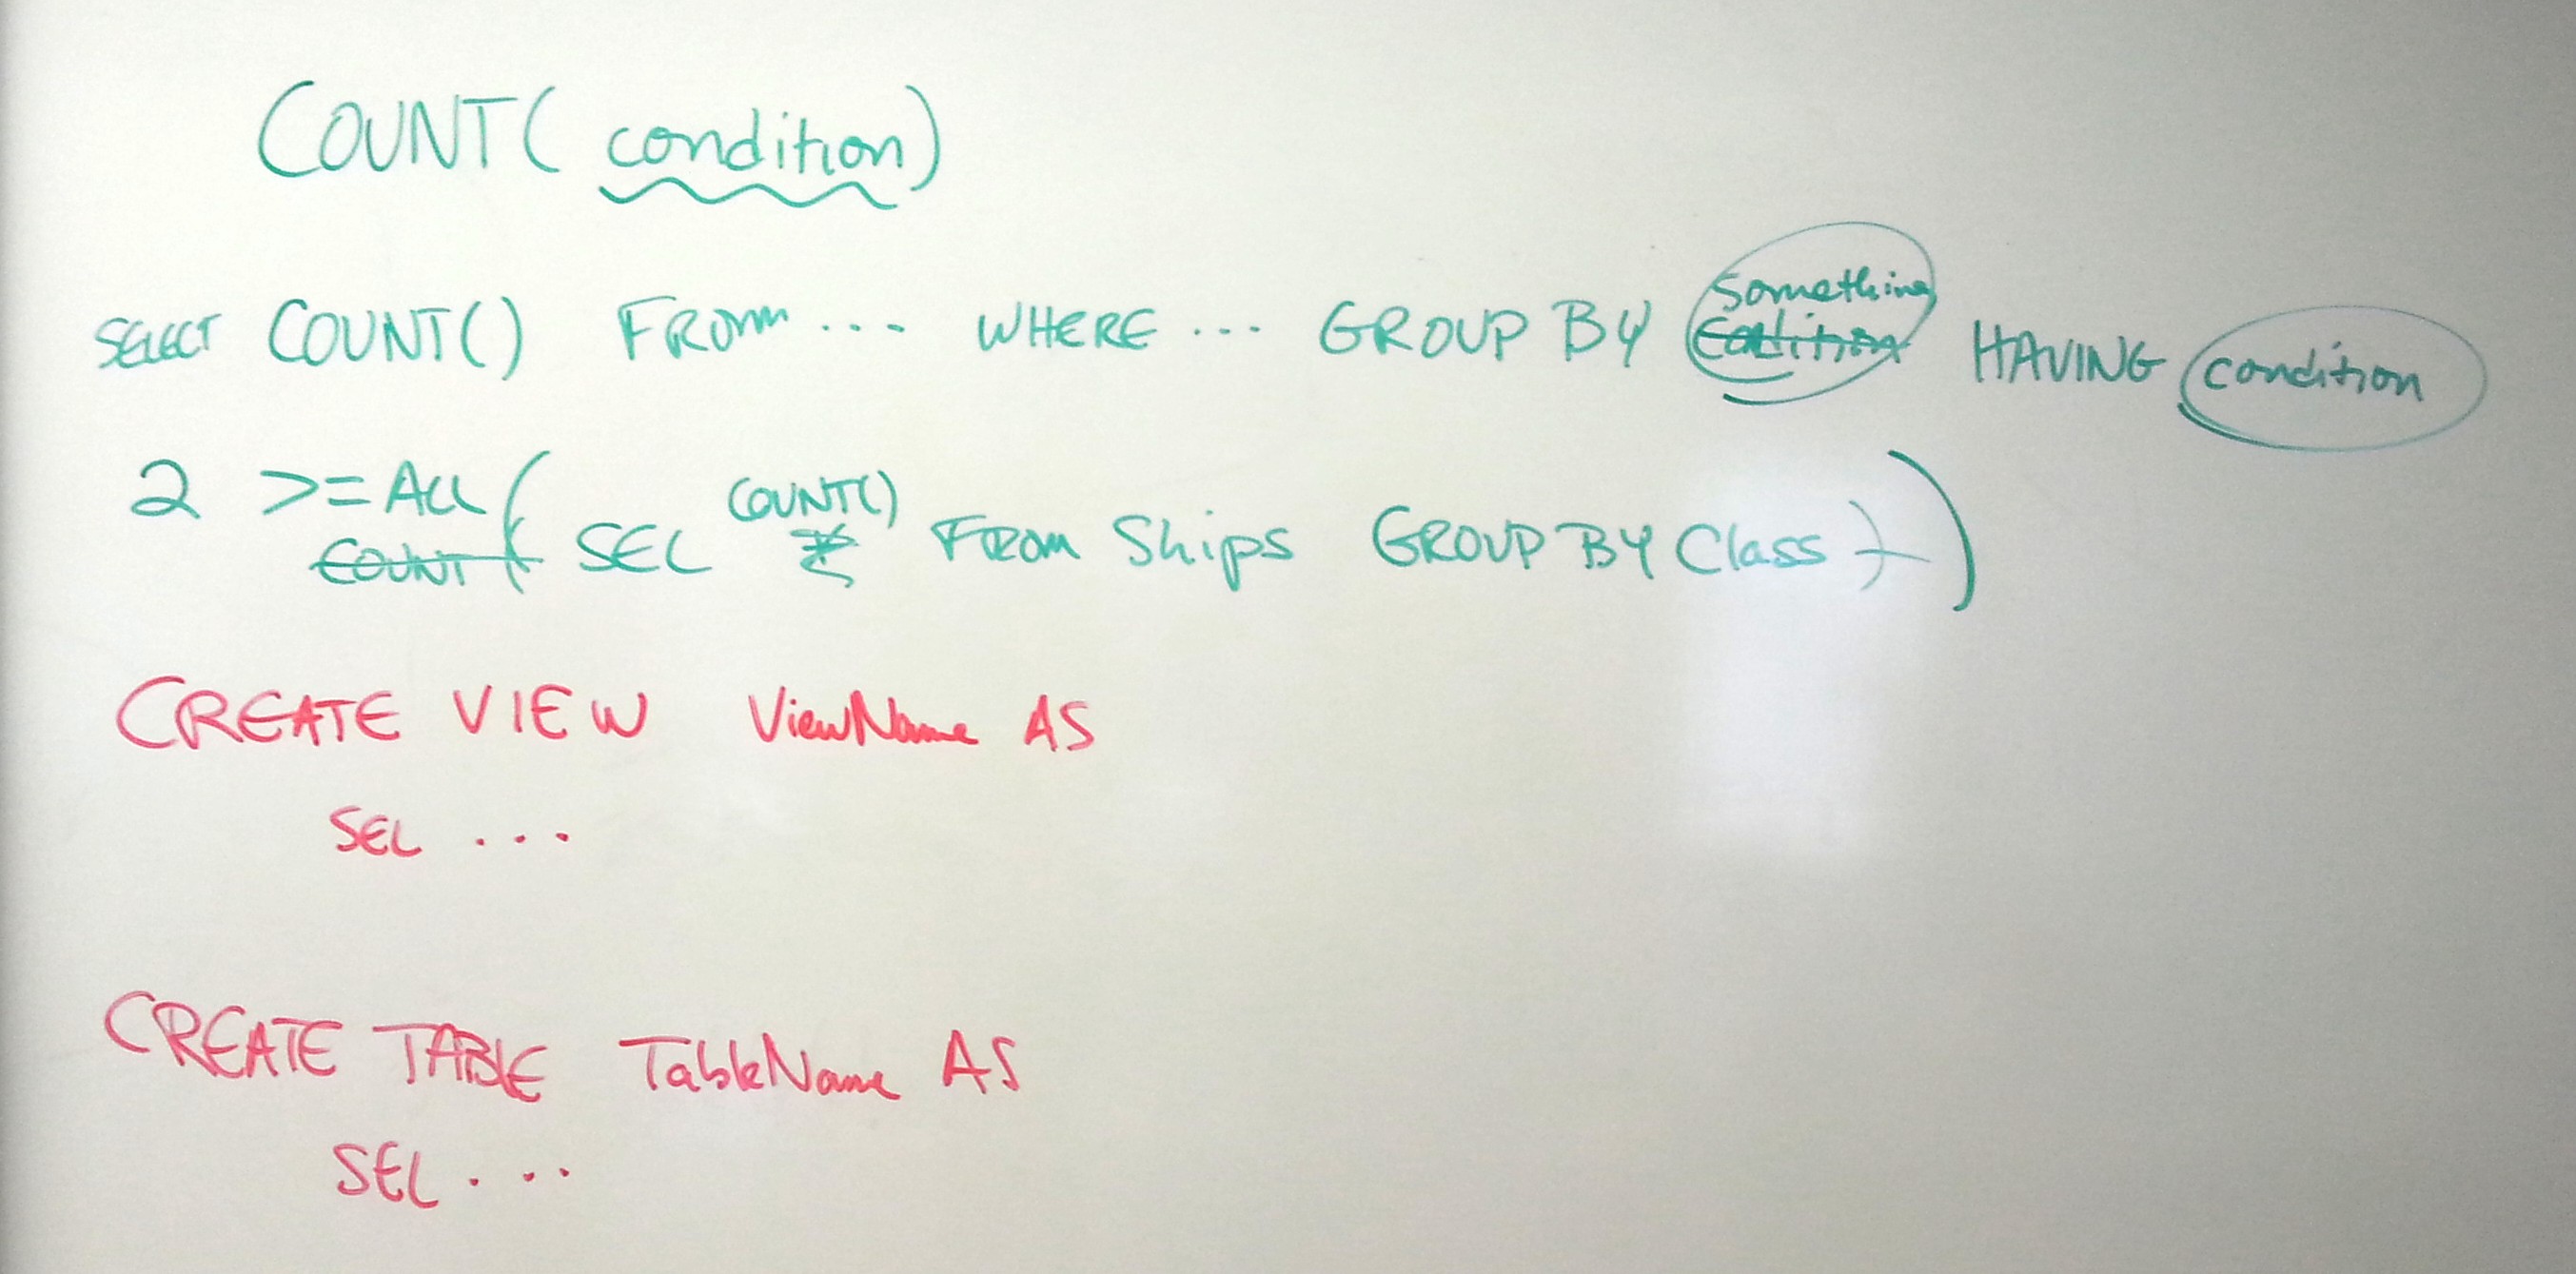 COUNT( condition)
SELECT COUNT() FROM ... WHERE ... GROUP BY something condition HAVING condition
2 >= ALL ( COUNT ( SEL COUNT() * FROM Ships GROUP BY Class ) )
CREATE VIEW ViewName AS
SEL ...
CREATE TABLE TableName AS
SEL ...